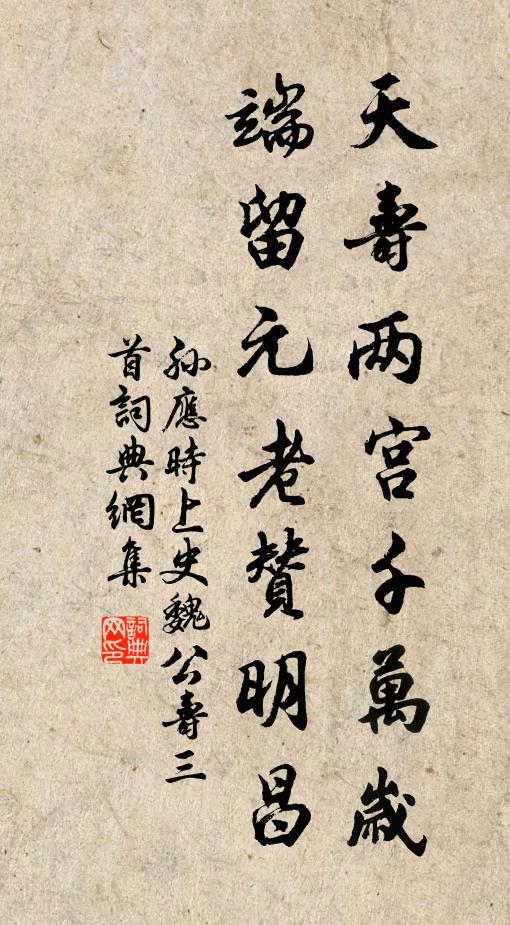 天壽两宫千萬歲
端留元老贊明昌
孫應時上史魏公壽三
首詞典網集
詞典
网印